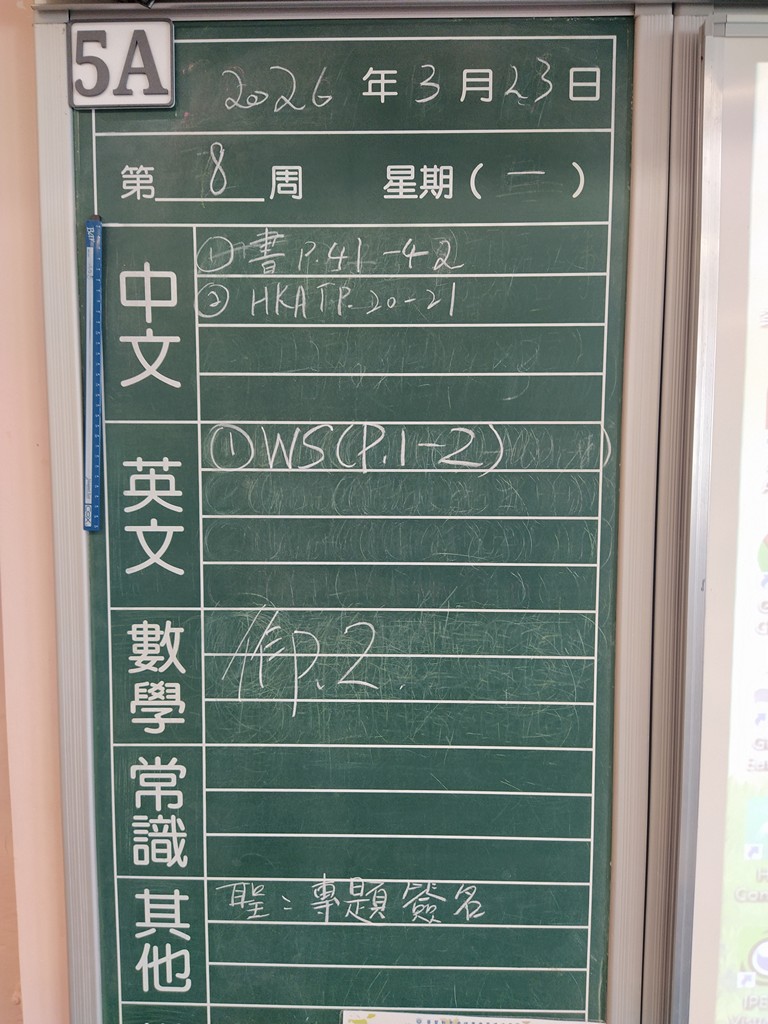 5A
2026 年 3 月 23 日
第 8 周 星期 ( 一 )
中文
① 書 P.41-42
② HKAT P.20-21
英文
① WS(P.1-2) )
數學
作P.2
常識
其他
聖：專題簽名